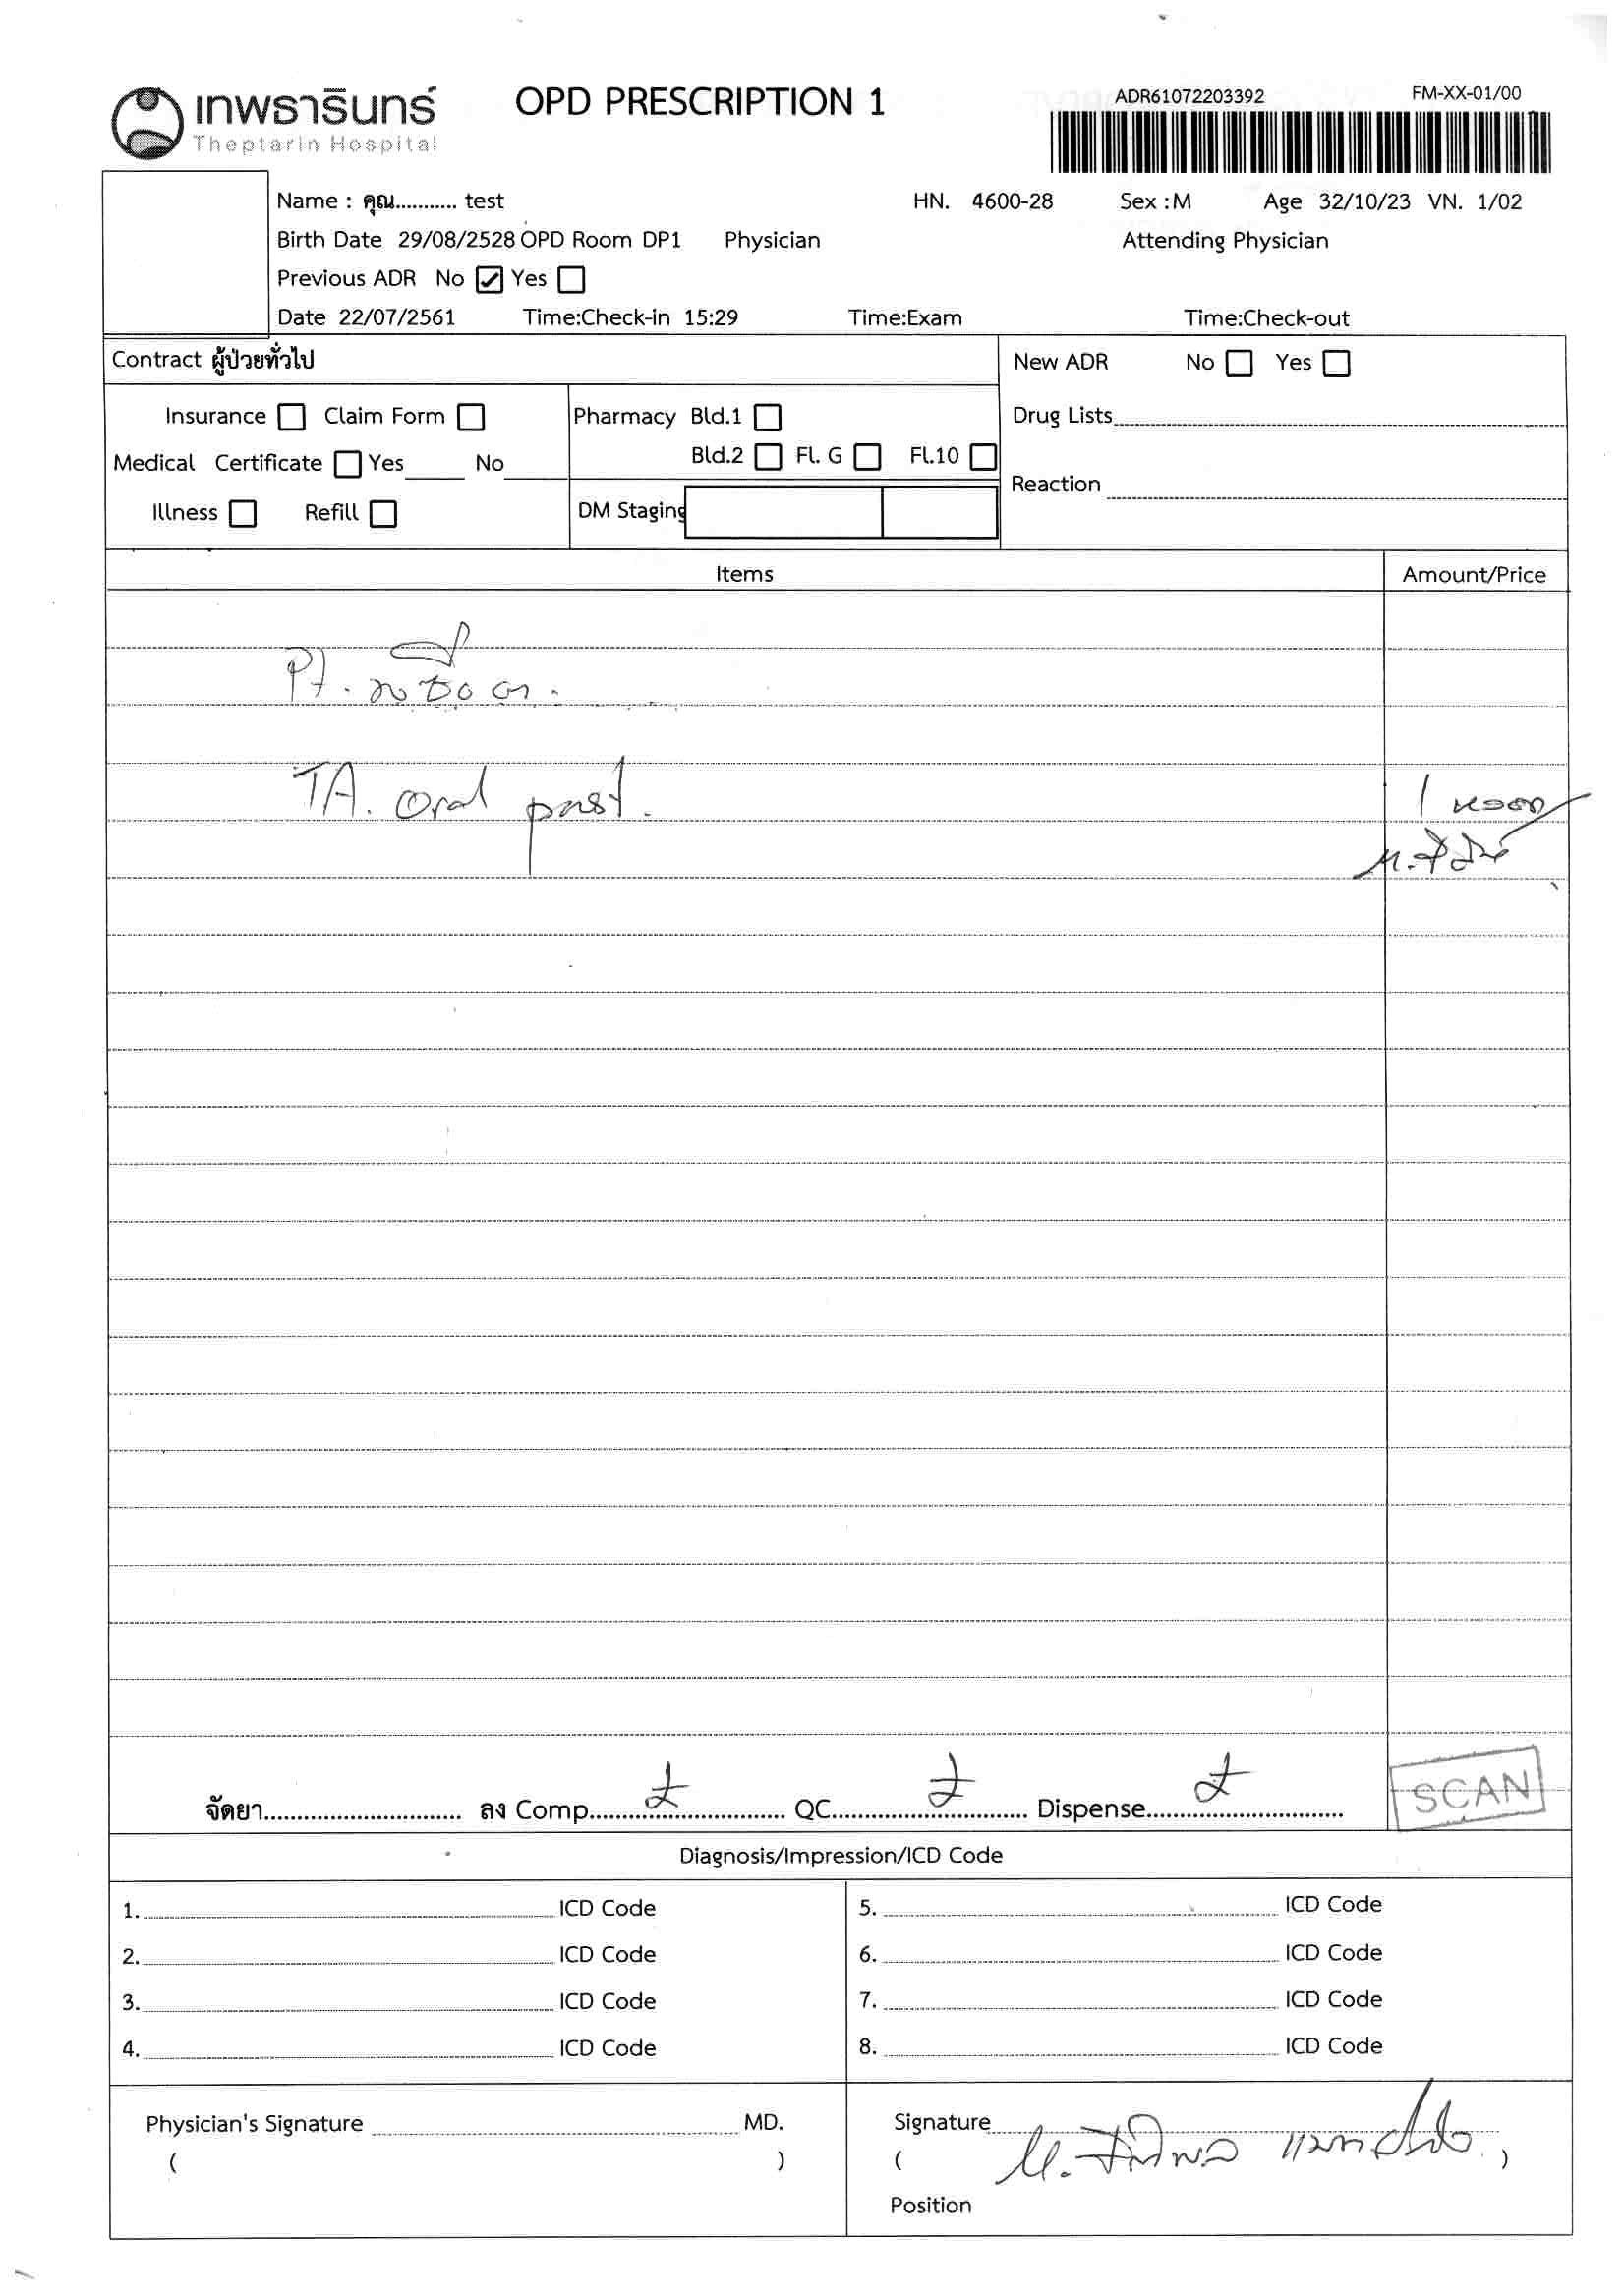 เทพธารินทร์
Theptarin Hospital
OPD PRESCRIPTION 1
ADR61072203392
FM-XX-01/00
Name : คุณ........... test HN. 4600-28 Sex :M Age 32/10/23 VN. 1/02
Birth Date 29/08/2528 OPD Room DP1 Physician Attending Physician
Previous ADR No Yes
Date 22/07/2561 Time:Check-in 15:29 Time:Exam Time:Check-out
Contract ผู้ป่วยทั่วไป
New ADR No Yes
Insurance Claim Form
Pharmacy Bld.1
Drug Lists
Medical Certificate Yes No
Bld.2 Fl. G Fl.10
Reaction
Illness Refill
DM Staging
Items Amount/Price
Pt. ขอซื้อยา.
TA. Oral past. 1 หลอด
จัดยา............................ ลง Comp............................ QC............................ Dispense............................
SCAN
Diagnosis/Impression/ICD Code
1. ICD Code 5. ICD Code
2. ICD Code 6. ICD Code
3. ICD Code 7. ICD Code
4. ICD Code 8. ICD Code
Physician's Signature MD. Signature
( ) ( )
Position